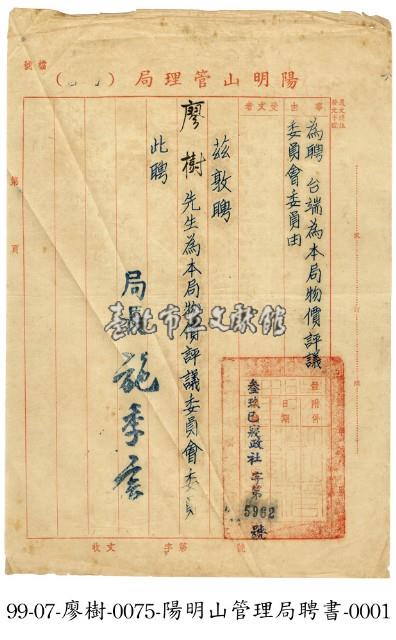 檔號
陽明山管理局（　　）
事由
受文者
為聘　台端為本局物價評議
委員會委員由
茲敦聘
廖樹先生為本局物價評議委員會委員
此聘
局長施季言
附件
日期
字第
5962
號
第　頁
收文　字第　號
臺北市立文獻館
99-07-廖樹-0075-陽明山管理局聘書-0001